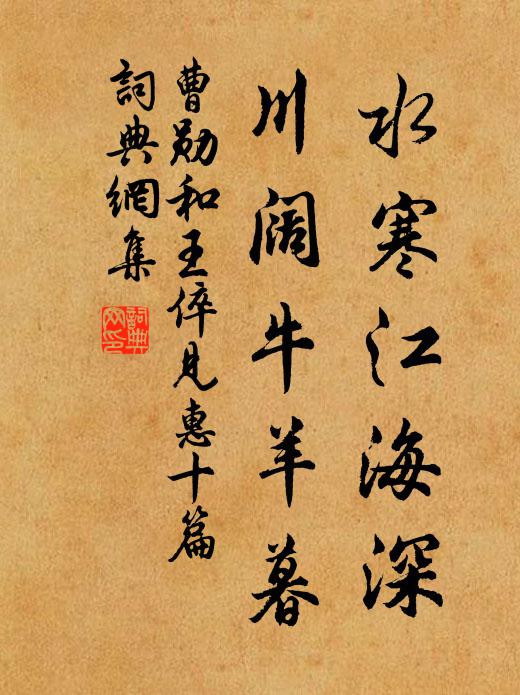 水寒江海深
川阔牛羊暮
曹勋和王倅见惠十篇
詞典網集
詞典网印